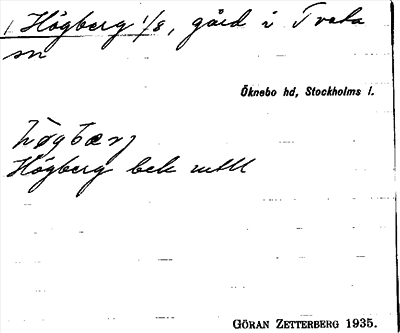 Högberg 1/8, gård i Tveta
sn
Öknebo hd, Stockholms l.
hǫgbærj
Högberg bek mtl
GÖRAN ZETTERBERG 1935.